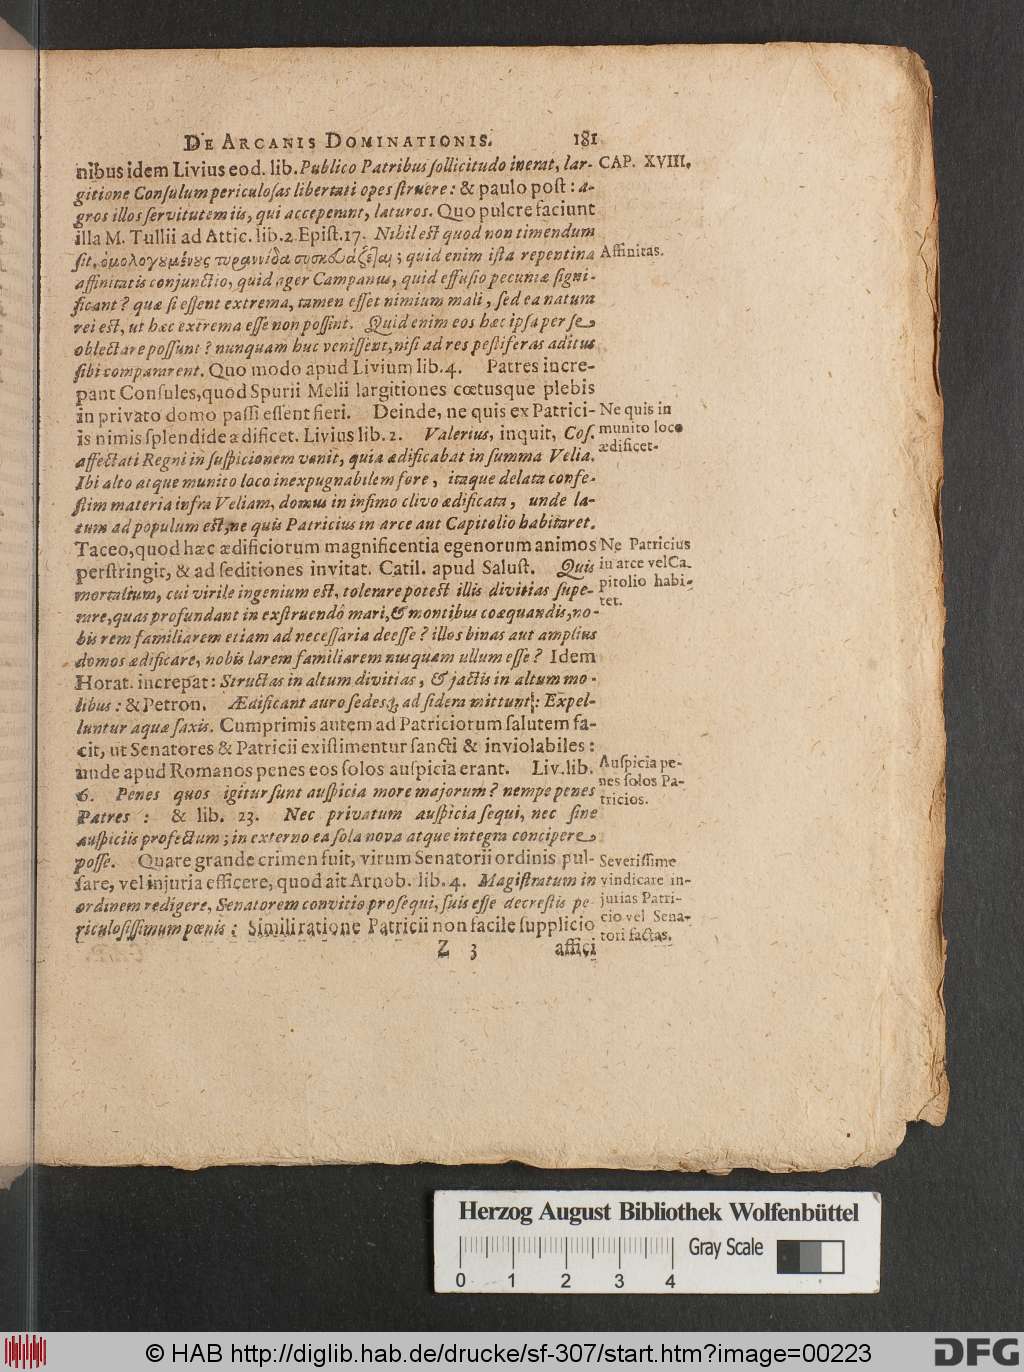 DE ARCANIS DOMINATIONIS. 181
nibus idem Livius eod. lib. Publico Patribus sollicitudo inerat, lar-
CAP. XVIII.
gitione Consulum periculosas libertati opes struere: & paulo post: a-
gros illos servitutem iis, qui acceperunt, laturos. Quo pulcre faciunt
illa M. Tullii ad Attic. lib. 2. Epist. 17. Nihil est quod non timendum
sit. ὁμολογουμένως τυραννίδα συσκευάζεται; quid enim ista repentina
Affinitas.
affinitatis conjunctio, quid ager Campanus, quid effusio pecuniæ signi-
ficant? quæ si essent extrema, tamen esset nimium mali, sed ea natura
rei est, ut hæc extrema esse non possint. Quid enim eos hæc ipsa per se
oblectare possunt? nunquam huc venissent, nisi ad res pestiferas aditus
sibi compararent. Quo modo apud Livium lib. 4. Patres incre-
pant Consules, quod Spurii Melii largitiones cœtusque plebis
in privato domo passi essent fieri. Deinde, ne quis ex Patrici-
is nimis splendide ædificet. Livius lib. 2. Valerius, inquit, Cos.
Ne quis in
munito loco
ædificet.
affectati Regni in suspicionem venit, quia ædificabat in summa Velia.
Ibi alto atque munito loco inexpugnabilem fore, itaque delata confe-
stim materia infra Veliam, domus in infimo clivo ædificata, unde la-
tum ad populum est, ne quis Patricius in arce aut Capitolio habitaret.
Taceo, quod hæc ædificiorum magnificentia egenorum animos
perstringit, & ad seditiones invitat. Catil. apud Salust. Quis
Ne Patricius
in arce vel Ca-
pitolio habi-
tet.
mortalium, cui virile ingenium est, tolerare potest illis divitias supe-
rare, quas profundant in exstruendô mari, & montibus coæquandis, no-
bis rem familiarem etiam ad necessaria deesse? illos binas aut amplius
domos ædificare, nobis larem familiarem nusquam ullum esse? Idem
Horat. increpat: Structas in altum divitias, & jactis in altum mo-
libus: & Petron. Ædificant auro sedesq, ad sidera mittunt: Expel-
luntur aquæ saxis. Cumprimis autem ad Patriciorum salutem fa-
cit, ut Senatores & Patricii existimentur sancti & inviolabiles:
unde apud Romanos penes eos solos auspicia erant. Liv. lib.
Auspicia pe-
nes solos Pa-
tricios.
6. Penes quos igitur sunt auspicia more majorum? nempe penes
Patres: & lib. 23. Nec privatum auspicia sequi, nec sine
auspiciis profectum; in externo ea sola nova atque integra concipere
posse. Quare grande crimen fuit, virum Senatorii ordinis pul-
sare, vel injuria efficere, quod ait Arnob. lib. 4. Magistratum in
ordinem redigere, Senatorem convitio prosequi, suis esse decrestis pe-
riculosissimum pœnis: Simili ratione Patricii non facile supplicio
Severissime
vindicare in-
jurias Patri-
cio vel Sena-
tori factas.
Z 3 affici
Herzog August Bibliothek Wolfenbüttel
Gray Scale
0 1 2 3 4
© HAB http://diglib.hab.de/drucke/sf-307/start.htm?image=00223
DFG